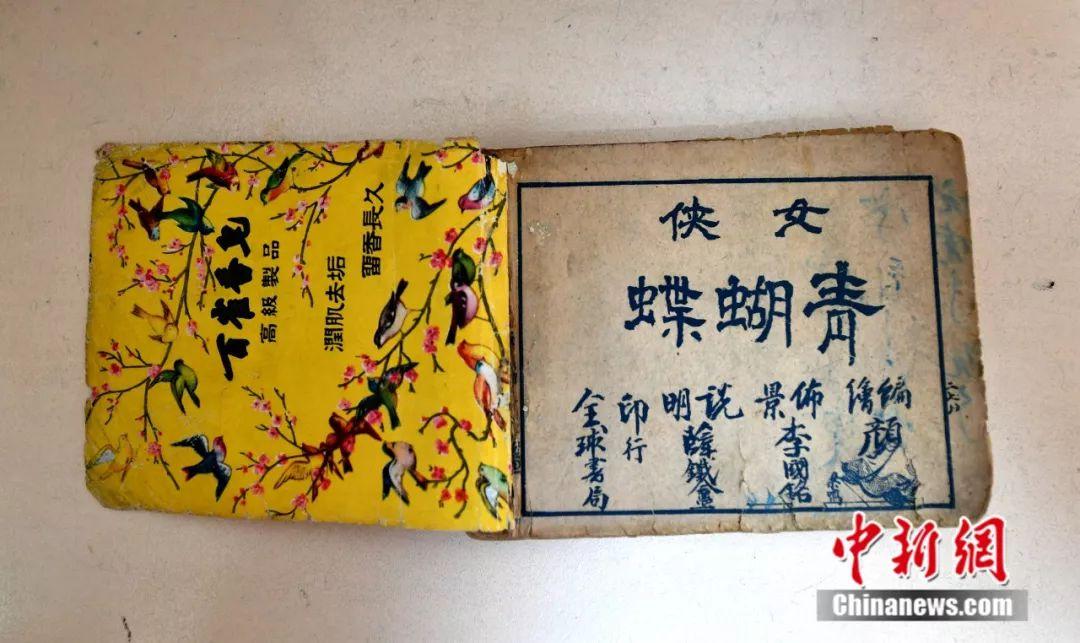 百雀香皂
高級製品
潤肌去垢
留香長久
女俠
青蝴蝶
編繪
顏
佈景
李國銘
說明
薛鐵
印行
全球書局
中新網
Chinanews.com